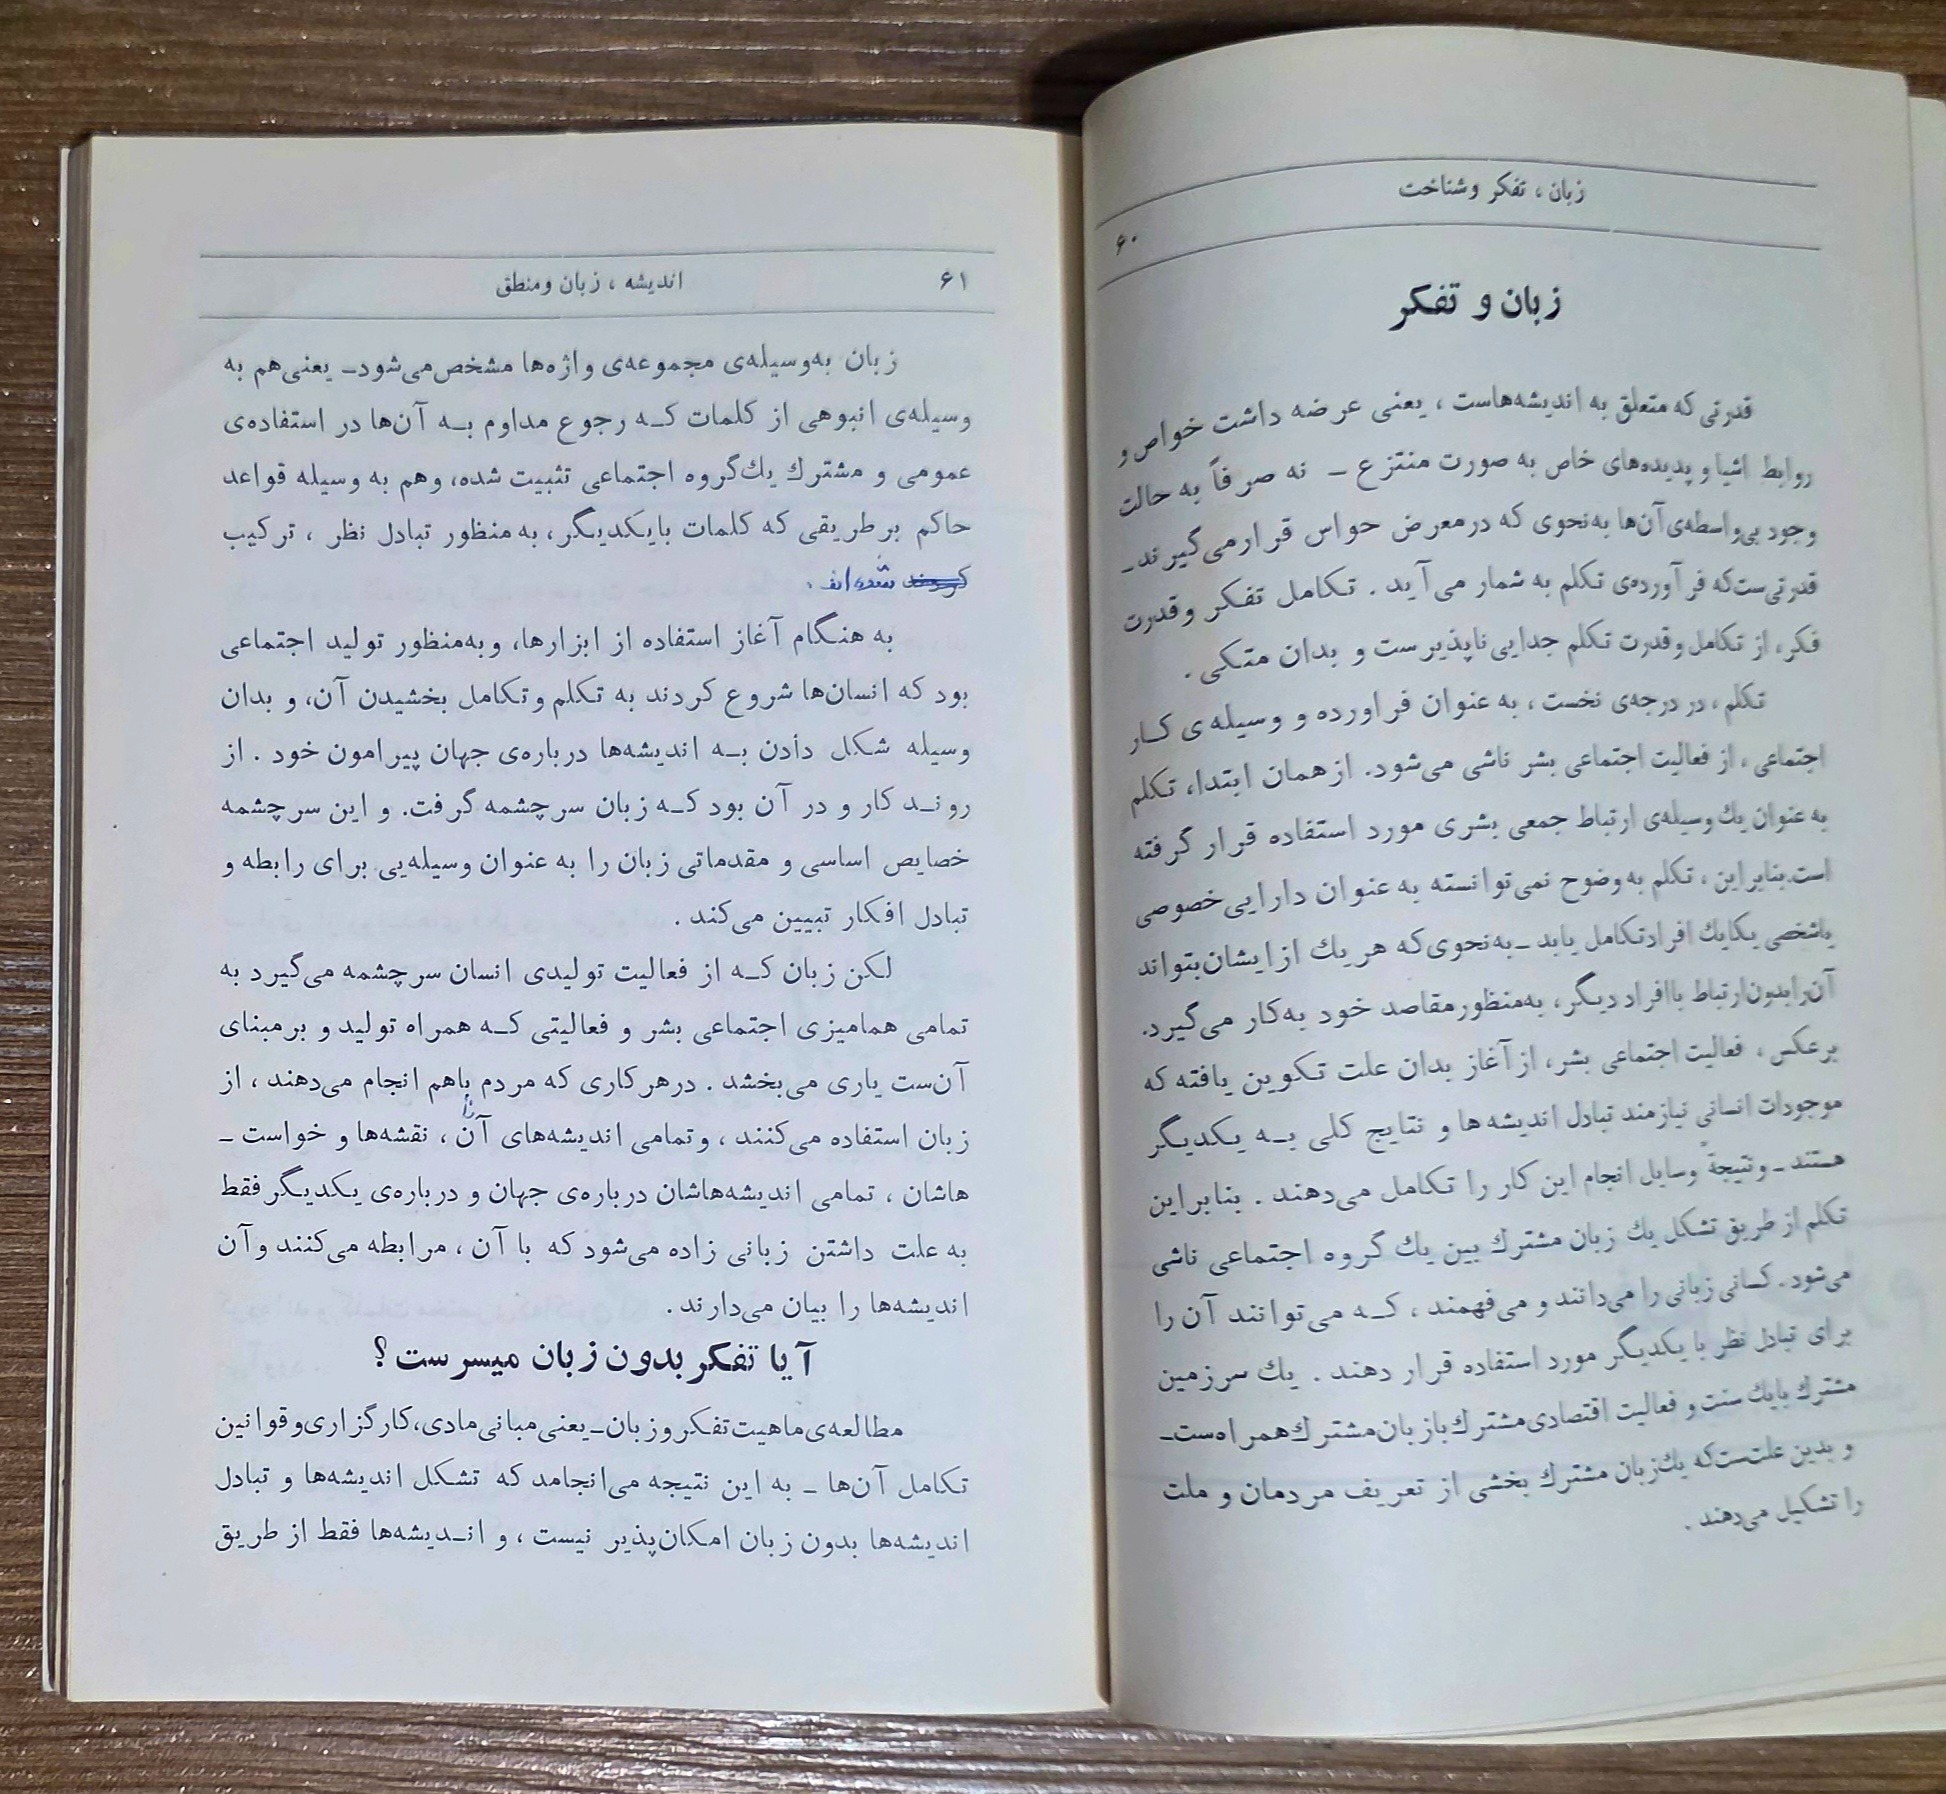 زبان ، تفکر و شناخت
۶۰
زبان و تفکر
قدرتی که متعلق به اندیشه‌هاست ، یعنی عرضه داشت خواص و
روابط اشیا و پدیده‌های خاص به صورت منتزع ـ نه صرفاً به حالت
وجود بی‌واسطه‌ی آن‌ها به‌نحوی که در معرض حواس قرار می‌گیرند ـ
قدرتی‌ست که فرآورده‌ی تکلم به شمار می‌آید . تکامل تفکر و قدرت
فکر، از تکامل و قدرت تکلم جدایی ناپذیرست و بدان متکی .
تکلم ، در درجه‌ی نخست ، به عنوان فراورده و وسیله‌ی کار
اجتماعی ، از فعالیت اجتماعی بشر ناشی می‌شود. از همان ابتدا، تکلم
به عنوان یك وسیله‌ی ارتباط جمعی بشری مورد استفاده قرار گرفته
است. بنابراین ، تکلم به وضوح نمی‌توانسته به عنوان دارایی خصوصی
یا شخصی یکایك افراد تکامل یابد ـ به‌نحوی‌که هر یك از ایشان بتواند
آن‌را بدون ارتباط با افراد دیگر، به‌منظور مقاصد خود به‌کار می‌گیرد.
برعکس ، فعالیت اجتماعی بشر، از آغاز بدان علت تکوین یافته که
موجودات انسانی نیازمند تبادل اندیشه‌ها و نتایج کلی به یکدیگر
هستند ـ و نتیجةً وسایل انجام این کار را تکامل می‌دهند . بنابراین
تکلم از طریق تشکل یك زبان مشترك بین یك گروه اجتماعی ناشی
می‌شود . کسانی زبانی را می‌دانند و می‌فهمند ، کـه می‌توانند آن را
برای تبادل نظر با یکدیگر مورد استفاده قرار دهند . یك سرزمین
مشترك با یك سنت و فعالیت اقتصادی مشترك با زبان مشترك همراه‌ست ـ
و بدین علت‌ست که یك زبان مشترك بخشی از تعریف مردمان و ملت
را تشکیل می‌دهند .
۶۱
اندیشه ، زبان و منطق
زبان به‌وسیله‌ی مجموعه‌ی واژه‌ها مشخص می‌شود ـ یعنی هم به
وسیله‌ی انبوهی از کلمات کـه رجوع مداوم بـه آن‌ها در استفاده‌ی
عمومی و مشترك یك گروه اجتماعی تثبیت شده، وهم به وسیله قواعد
حاکم بر طریقی که کلمات با یکدیگر، به‌منظور تبادل نظر ، ترکیب
کردند شده‌اند .
به هنگام آغاز استفاده از ابزارها، و به‌منظور تولید اجتماعی
بود که انسان‌ها شروع کردند به تکلم و تکامل بخشیدن آن، و بدان
وسیله شکل دادن بـه اندیشه‌ها درباره‌ی جهان پیرامون خود . از
رونـد کار و در آن بود کـه زبان سرچشمه گرفت. و این سرچشمه
خصایص اساسی و مقدماتی زبان را به عنوان وسیله‌یی برای رابطه و
تبادل افکار تبیین می‌کند .
لکن زبان کـه از فعالیت تولیدی انسان سرچشمه می‌گیرد به
تمامی همامیزی اجتماعی بشر و فعالیتی کـه همراه تولید و بر مبنای
آن‌ست یاری می‌بخشد . در هر کاری که مردم باهم انجام می‌دهند ، از
زبان استفاده می‌کنند ، و تمامی اندیشه‌های آن ، نقشه‌ها و خواست ـ
هاشان ، تمامی اندیشه‌هاشان درباره‌ی جهان و درباره‌ی یکدیگر فقط
به علت داشتن زبانی زاده می‌شود که با آن ، مرابطه می‌کنند و آن
اندیشه‌ها را بیان می‌دارند .
آیا تفکر بدون زبان میسرست ؟
مطالعه‌ی ماهیت تفکر و زبان ـ یعنی مبانی مادی، کارگزاری و قوانین
تکامل آن‌ها ـ به این نتیجه می‌انجامد که تشکل اندیشه‌ها و تبادل
اندیشه‌ها بدون زبان امکان‌پذیر نیست ، و انـدیشه‌ها فقط از طریق